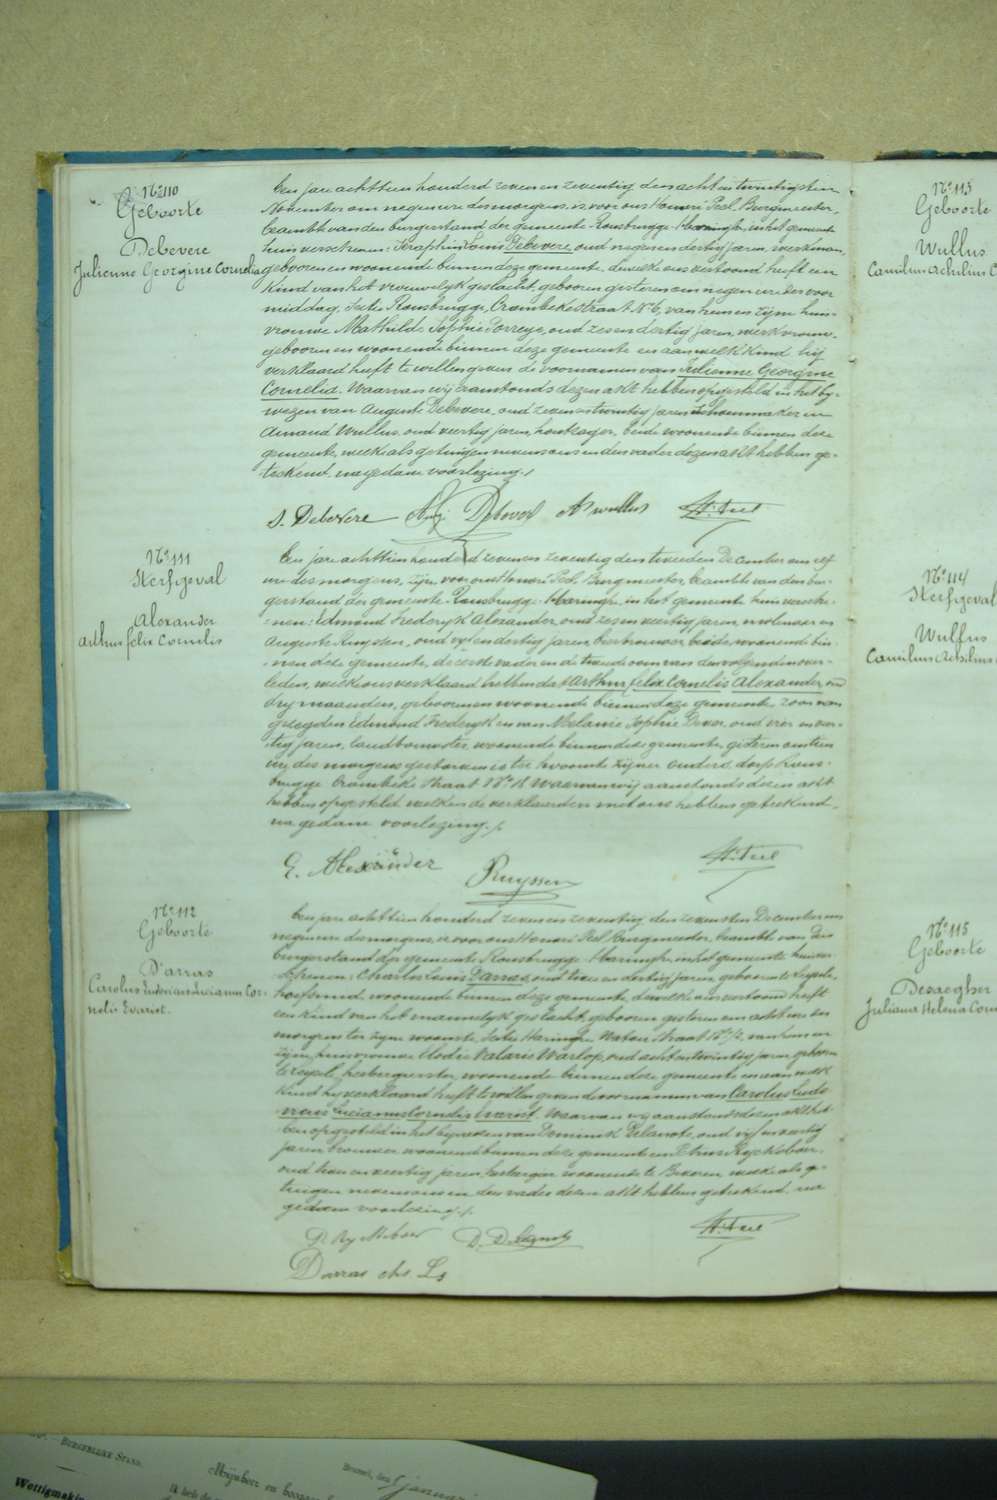 N° 110
Geboorte
Debevere
Julienne Georgine Cornelia
Een jare achttien honderd zeven en zeventig den acht en twintigsten
November om negen ure des morgens, is voor ons Honoré Peel, Burgmeester,
beambte van den burgerstand der gemeente Rousbrugge-Haringhe, in het gemeente
huis verschenen: Seraphin Louis Debevere, oud negen en dertig jaren, werkman,
geboren en woonende binnen deze gemeente, dewelke ons vertoond heeft een
kind van het vrouwelyk geslacht, geboren gisteren om negen ure des voor
middag, Sectie Rousbrugge, Crombekestraat N° 6, van hem en zyne huis-
vrouw Mathilde Sophie Porreye, oud zes en dertig jaren, werkvrouw,
geboren en woonende binnen deze gemeente en aan welk kind hij
verklaard heeft te willen geven de voornamen van Julienne Georgine
Cornelia. Waarvan wij aanstonds dezen akt hebben opgesteld in het by-
wezen van Auguste Debevere, oud zeven en twintig jaren schoenmaker en
Amand Wullus, oud veertig jaren, houtzager, beide woonende binnen deze
gemeente, welk als getuigen nevens ons en den vader dezen akt hebben ge-
teekend, na gedane voorlezing./
S. Debevere Aug. Debever A. Wullus H. Peel
N° 111
Sterfgeval
Alexander
Arthur felix Cornelis
Een jare achttien honderd zeven en zeventig den tweeden December om elf
ure des morgens, zijn, voor ons Honoré Peel, Burgmeester, beambte van den bur-
gerstand der gemeente Rousbrugge-Haringhe, in het gemeente huis versche-
nen: Edmond Frederyk Alexander, oud zes en veertig jaren, molenaar en
Auguste Ruyssen, oud vyf en dertig jaren, herbrouwer, beide woonende bin-
nen deze gemeente, de eerste vader en de tweede oom van den volgenden over-
leden, welke ons verklaard hebben dat Arthur felix Cornelis Alexander, oud
dry maanden, geboren en woonende binnen deze gemeente, zoon van
gezegden Edmond Frederyk en van Melanie Sophie Dever, oud vier en veer-
tig jaren, landbouwster, woonende binnen deze gemeente, gisteren om tien
ure des morgens, gestorven is ter woonste zijner ouders, dorp Rous-
brugge Crombeke straat N° 18. Waarvan wij aanstonds dezen akt
hebben opgesteld welken de verklaarders met ons hebben geteekend,
na gedane voorlezing./
E. Alexander Ruyssen H. Peel
N° 112
Geboorte
D'arras
Carolus Ludovicus Lucianus Cor-
nelis Evarist.
Een jare achttien honderd zeven en zeventig den zevensten December om
negen ure des morgens, is voor ons Honoré Peel Burgmeester, beambte van den
burgerstand der gemeente Rousbrugge-Haringhe in het gemeente huis ver-
schenen: Charles Louis Darras, oud twee en dertig jaren, geboren te
hoefsmid, woonende binnen deze gemeente, dewelke ons vertoond heeft
een kind van het mannelyk geslacht, geboren gisteren om acht ure des
morgens ter zyne woonste, Sectie Haringhe Watou straat N° 1/2, van hem en
zijne huisvrouw Elodie Valerie Warlop, oud acht en twintig jaren geboren
herbergierster, woonende binnen deze gemeente en aan welk
kind hy verklaard heeft te willen geven de voornamen van Carolus Ludo
vicus Lucianus Cornelis Evarist. Waarvan wij aanstonds dezen akt heb-
ben opgesteld in het bywezen van Dominik Delanote, oud vijf en veertig
jaren brouwer, woonende binnen deze gemeente en Petrus Ryckeboer,
oud twee en veertig jaren, herbergier woonende te Beveren, welke als ge-
tuigen nevens ons en den vader dezen akt hebben geteekend, na
gedane voorlezing./.
P. Ryckeboer D. Delanote H. Peel
Darras chs Ls
N° 113
Geboorte
Wullus
Camilus Achilius C
N° 114
Sterfgeval
Wullus
Camilus Achilius
N° 115
Geboorte
Desaegher
Juliana Helena Corn
Burgerlijke Stand.
Brussel, den januari
Mijnheer en
Ik heb de
Wettigmakin